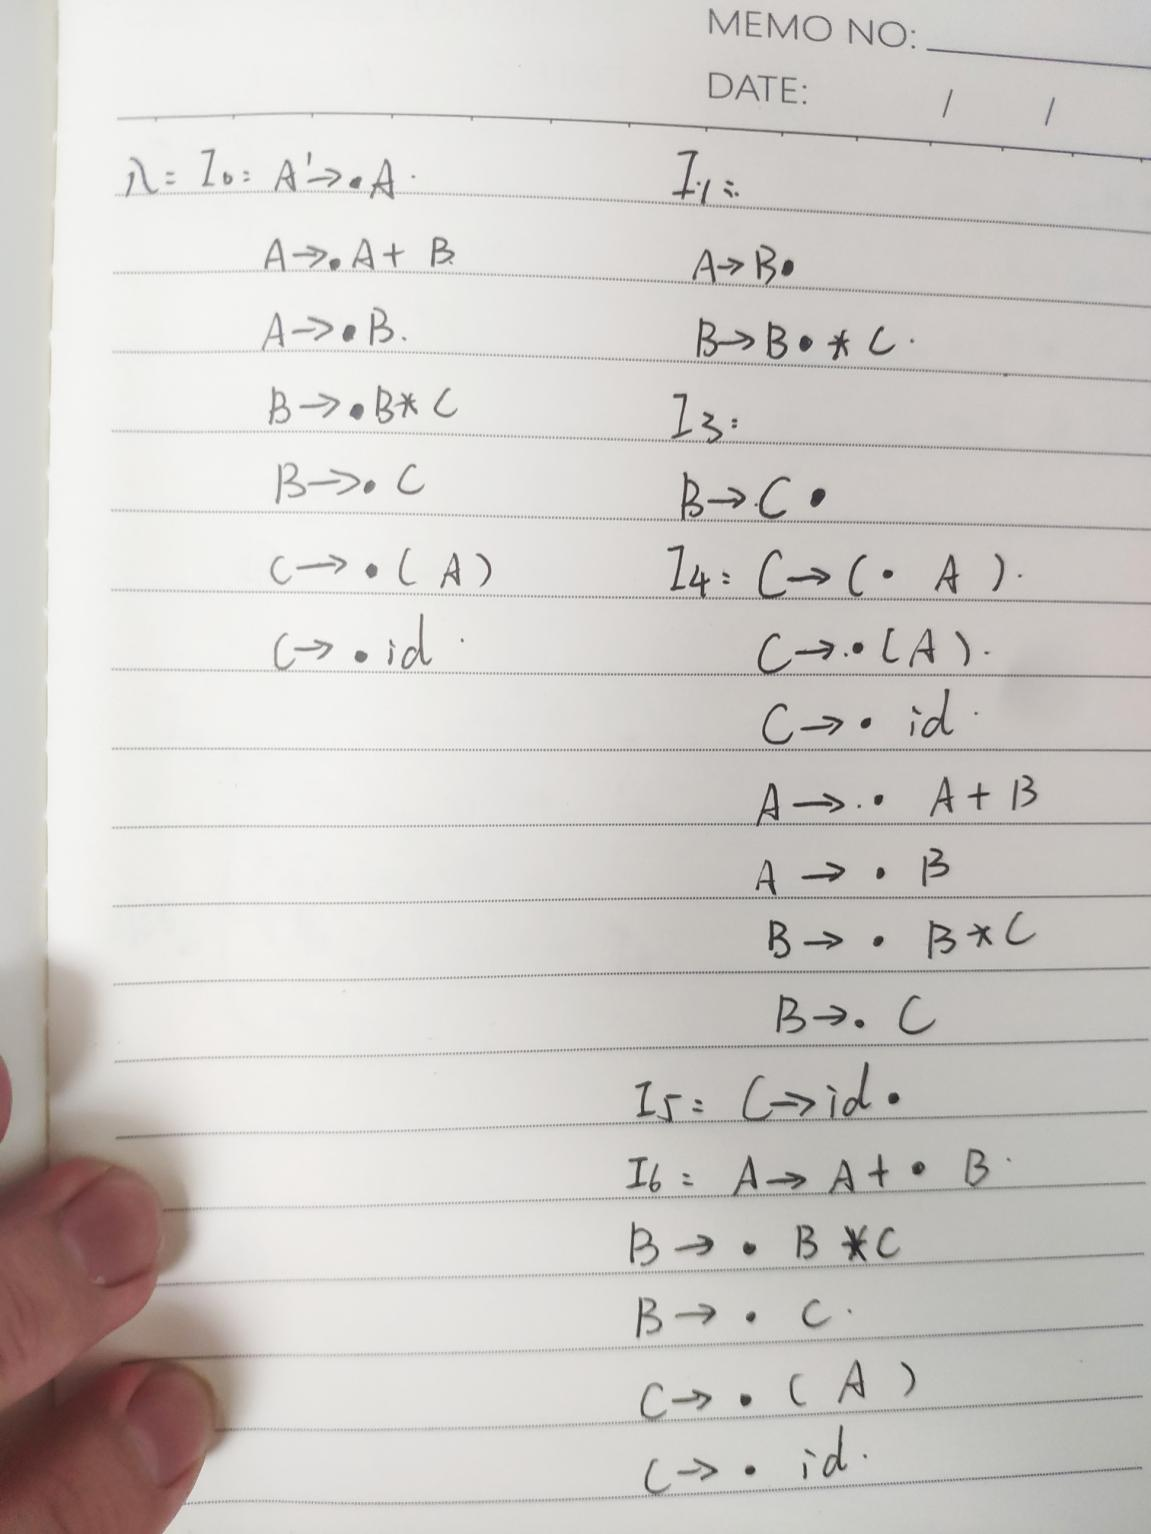 MEMO NO:
DATE: / /
八: I0: A'→•A
A→•A+ B
A→•B.
B→•B* C
B→•C
C→•( A)
C→•id
I1:
A→B•
B→B•* C.
I3:
B→C•
I4: C→(• A ).
C→•(A).
C→• id
A→• A+B
A→• B
B→• B*C
B→• C
I5: C→id•
I6: A→A+• B
B→• B*C
B→• C.
C→•( A )
C→• id.